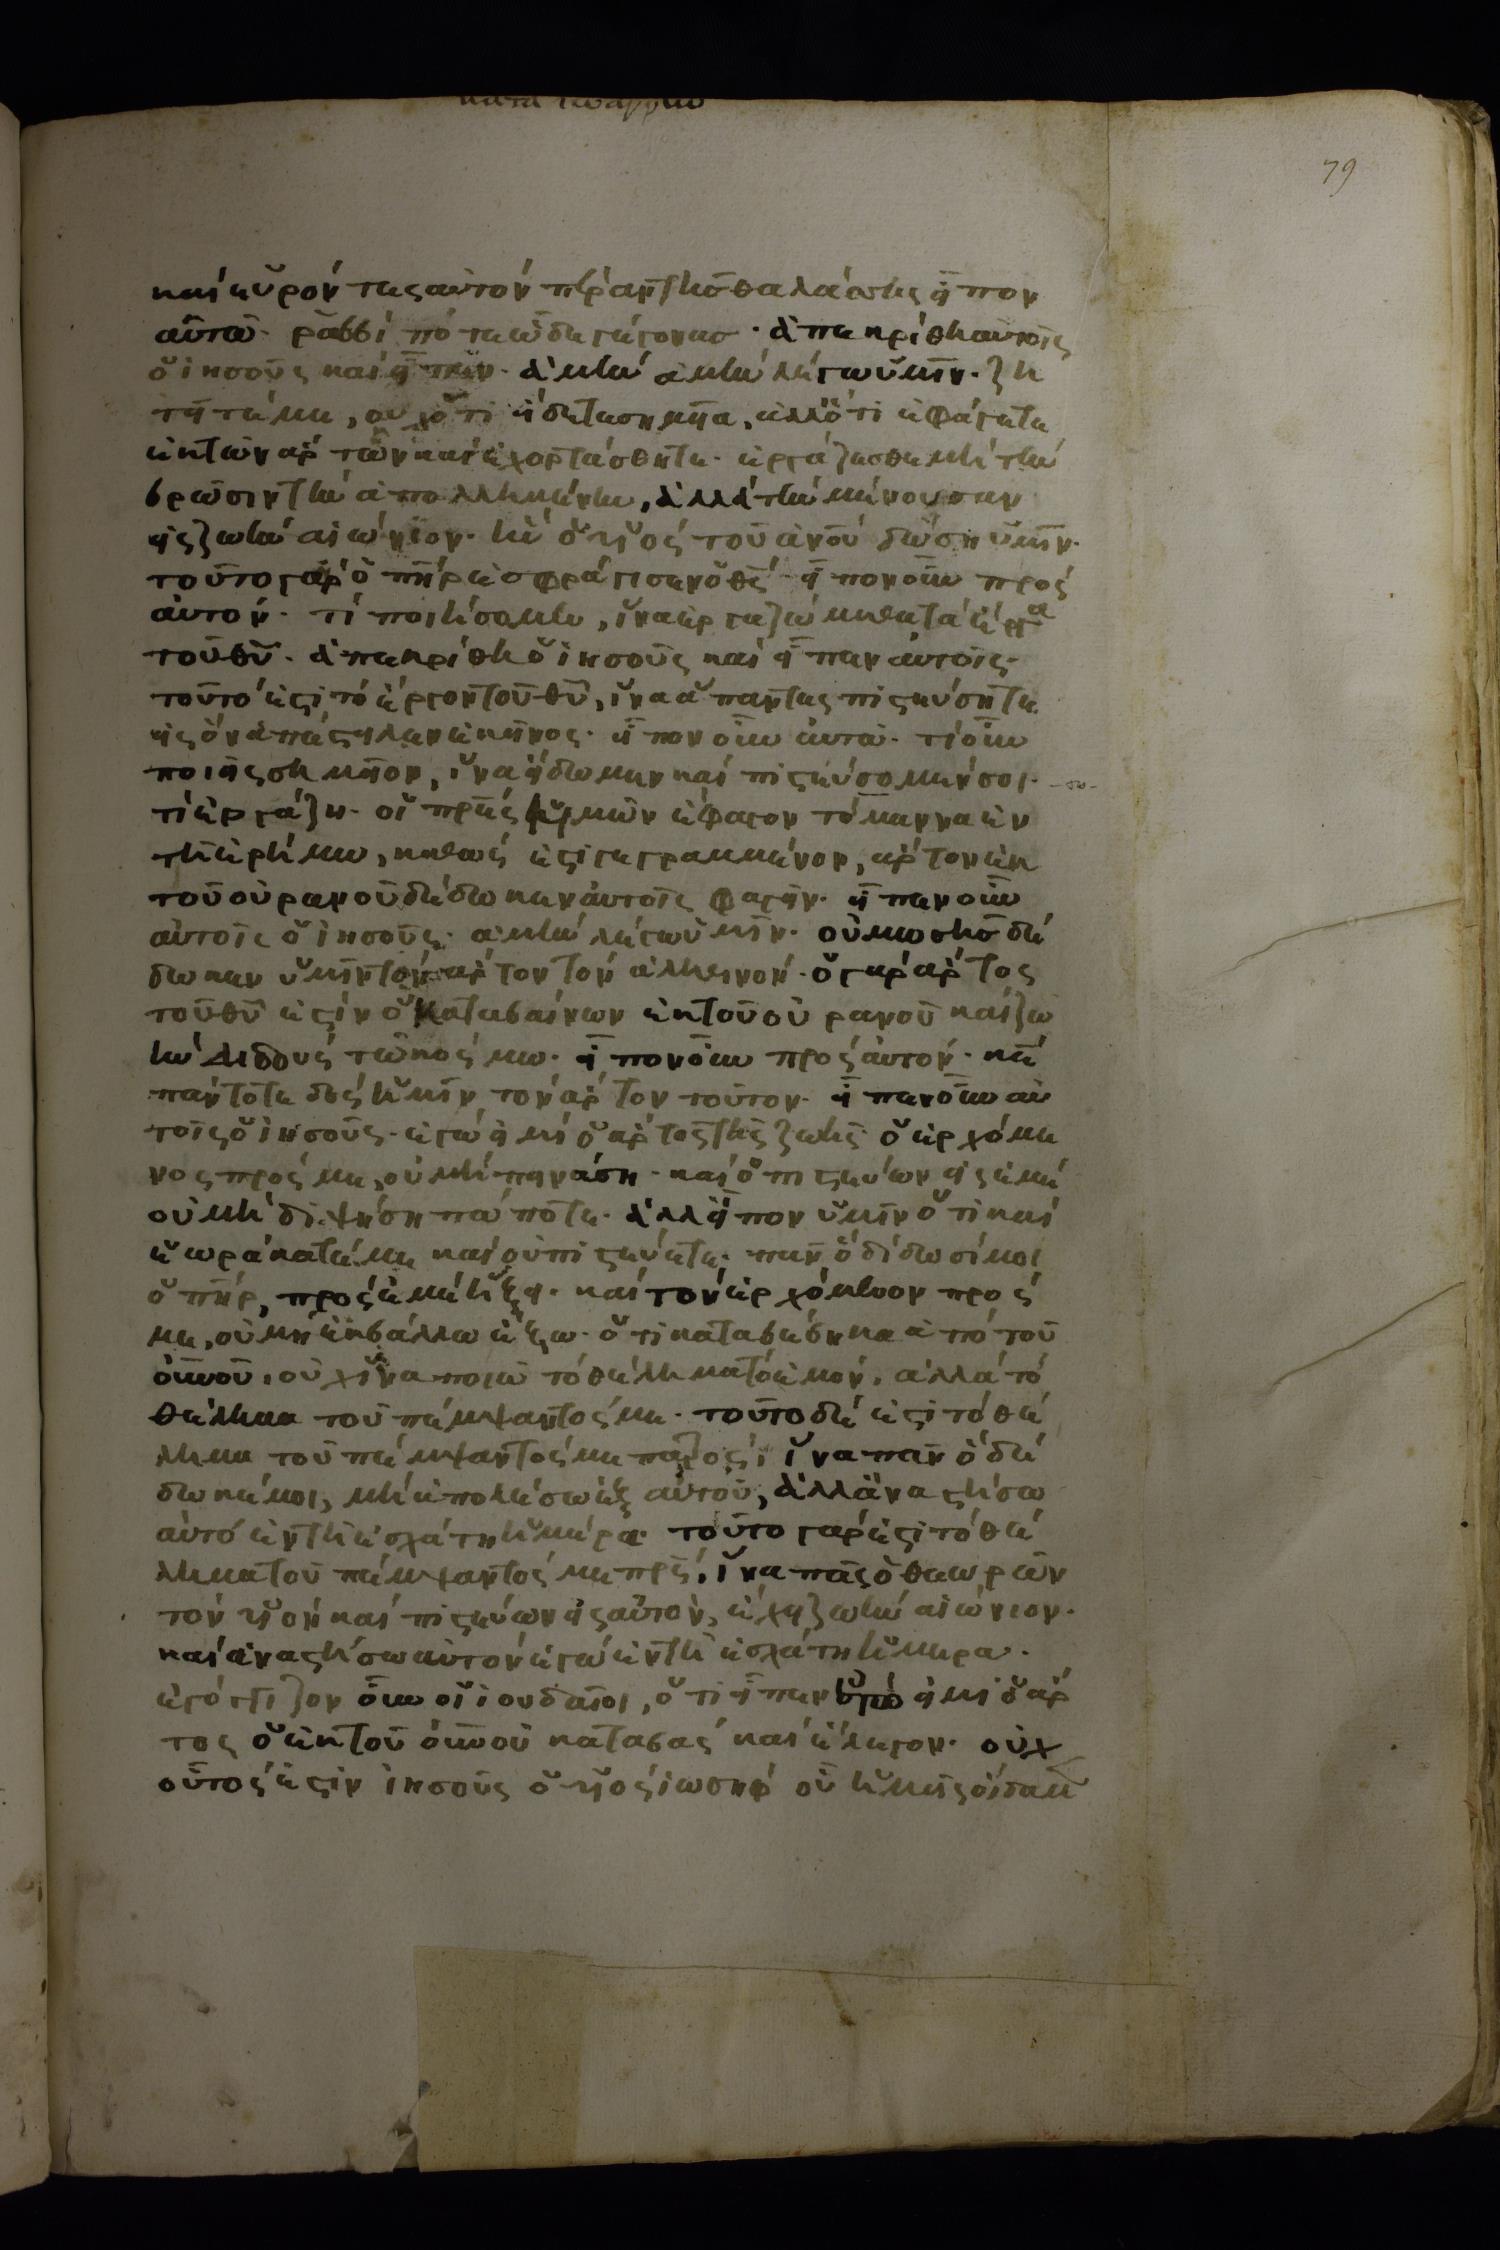 κατα ιωαννην
79
και ευρόντες αυτόν πέραν της θαλάσσης εἶπον
αὐτῶ· ραββί πότε ὧδε γέγονας· ἀπεκρίθη αὐτοῖς
ὁ ἰησοῦς καί εἶπεν· ἀμήν ἀμήν λέγω ὑμῖν· ζη
τεῖτέ με, οὐχ ὅτι εἴδετε σημεῖα, ἀλλ' ὅτι ἐφάγετε
ἐκ τῶν ἄρτων καί ἐχορτάσθητε· ἐργάζεσθε μή τήν
βρῶσιν τήν ἀπολλημένην, ἀλλά τήν μένουσαν
εἰς ζωήν αἰώνιον· ἥν ὁ υἱός τοῦ ἀνοῦ δώσει ὑμῖν·
τοῦτο γάρ ὁ πηρ ἐσφράγισεν ὁ θς· εἶπον οὖν πρός
αὐτόν· τί ποιήσομεν, ἵνα ἐργαζώμεθα τά ἔργα
τοῦ θυ· ἀπεκρίθη ὁ ἰησοῦς καί εἶπεν αὐτοῖς·
τοῦτό ἐστι τό ἔργον τοῦ θυ, ἵνα ἅπαντες πιστεύσητε
εἰς ὅν ἀπέστειλεν ἐκεῖνος· εἶπον οὖν αὐτῶ· τί οὖν
ποιεῖς σημεῖον, ἵνα εἴδωμεν καί πιστεύσομέν σοι·
τί ἐργάζη· οἱ πρες ἡμῶν ἔφαγον τό μαννα ἐν
τῆ ἐρήμω, καθώς ἐστι γεγραμμένον, ἄρτον ἐκ
τοῦ οὐρανοῦ δέδωκεν αὐτοῖς φαγεῖν· εἶπεν οὖν
αὐτοῖς ὁ ἰησοῦς· ἀμήν λέγω ὑμῖν· οὐ μωσῆς δέ
δωκεν ὑμῖν τόν ἄρτον τόν ἀληθινόν· ὁ γάρ ἄρτος
τοῦ θυ ἐστίν ὁ καταβαίνων ἐκ τοῦ οὐρανοῦ καί ζω
ήν διδούς τῶ κόσμω· εἶπον οὖν πρός αὐτόν· κε
πάντοτε δός ἡμῖν τόν ἄρτον τοῦτον· εἶπεν οὖν αὐ
τοῖς ὁ ἰησοῦς· ἐγώ εἰμί ὁ ἄρτος τῆς ζωῆς ὁ ἐρχόμε
νος πρός με, οὐ μή πεινάση· καί ὁ πιστεύων εἰς ἐμέ
οὐ μή διψήση πώποτε· ἀλλ' εἶπον ὑμῖν ὅτι καί
ἑωράκατέ με καί οὐ πιστεύετε· παν ὅ δίδωσί μοι
ὁ πηρ, πρός ἐμέ ἥξει· καί τόν ἐρχόμενον πρός
με, οὐ μή ἐκβάλλω ἔξω· ὅτι καταβέβηκα ἀπό τοῦ
οὐνοῦ, οὐχ ἵνα ποιῶ τό θέλημα τό ἐμόν, ἀλλά τό
θέλημα τοῦ πέμψαντός με· τοῦτο δέ ἐστι τό θέ
λημα τοῦ πέμψαντός με πατρός, ἵνα παν ὅ δέ
δωκέ μοι, μή ἀπολέσω ἐξ αὐτοῦ, ἀλλ' ἀναστήσω
αὐτό ἐν τῆ ἐσχάτη ἡμέρα· τοῦτο γάρ ἐστι τό θέ
λημα τοῦ πέμψαντός με πρς, ἵνα πᾶς ὁ θεωρῶν
τόν υἱόν καί πιστεύων εἰς αὐτόν, ἔχει ζωήν αἰώνιον·
καί ἀναστήσω αὐτόν ἐγώ ἐν τῆ ἐσχάτη ἡμέρα·
ἐγόγγιζον οὖν οἱ ἰουδαῖοι, ὅτι εἶπεν ἐγώ εἰμί ὁ ἄρ
τος ὁ ἐκ τοῦ οὐνοῦ καταβάς καί ἔλεγον· οὐχ
οὗτός ἐστιν ἰησοῦς ὁ υἱός ἰωσήφ οὗ ἡμεῖς οἴδαμεν